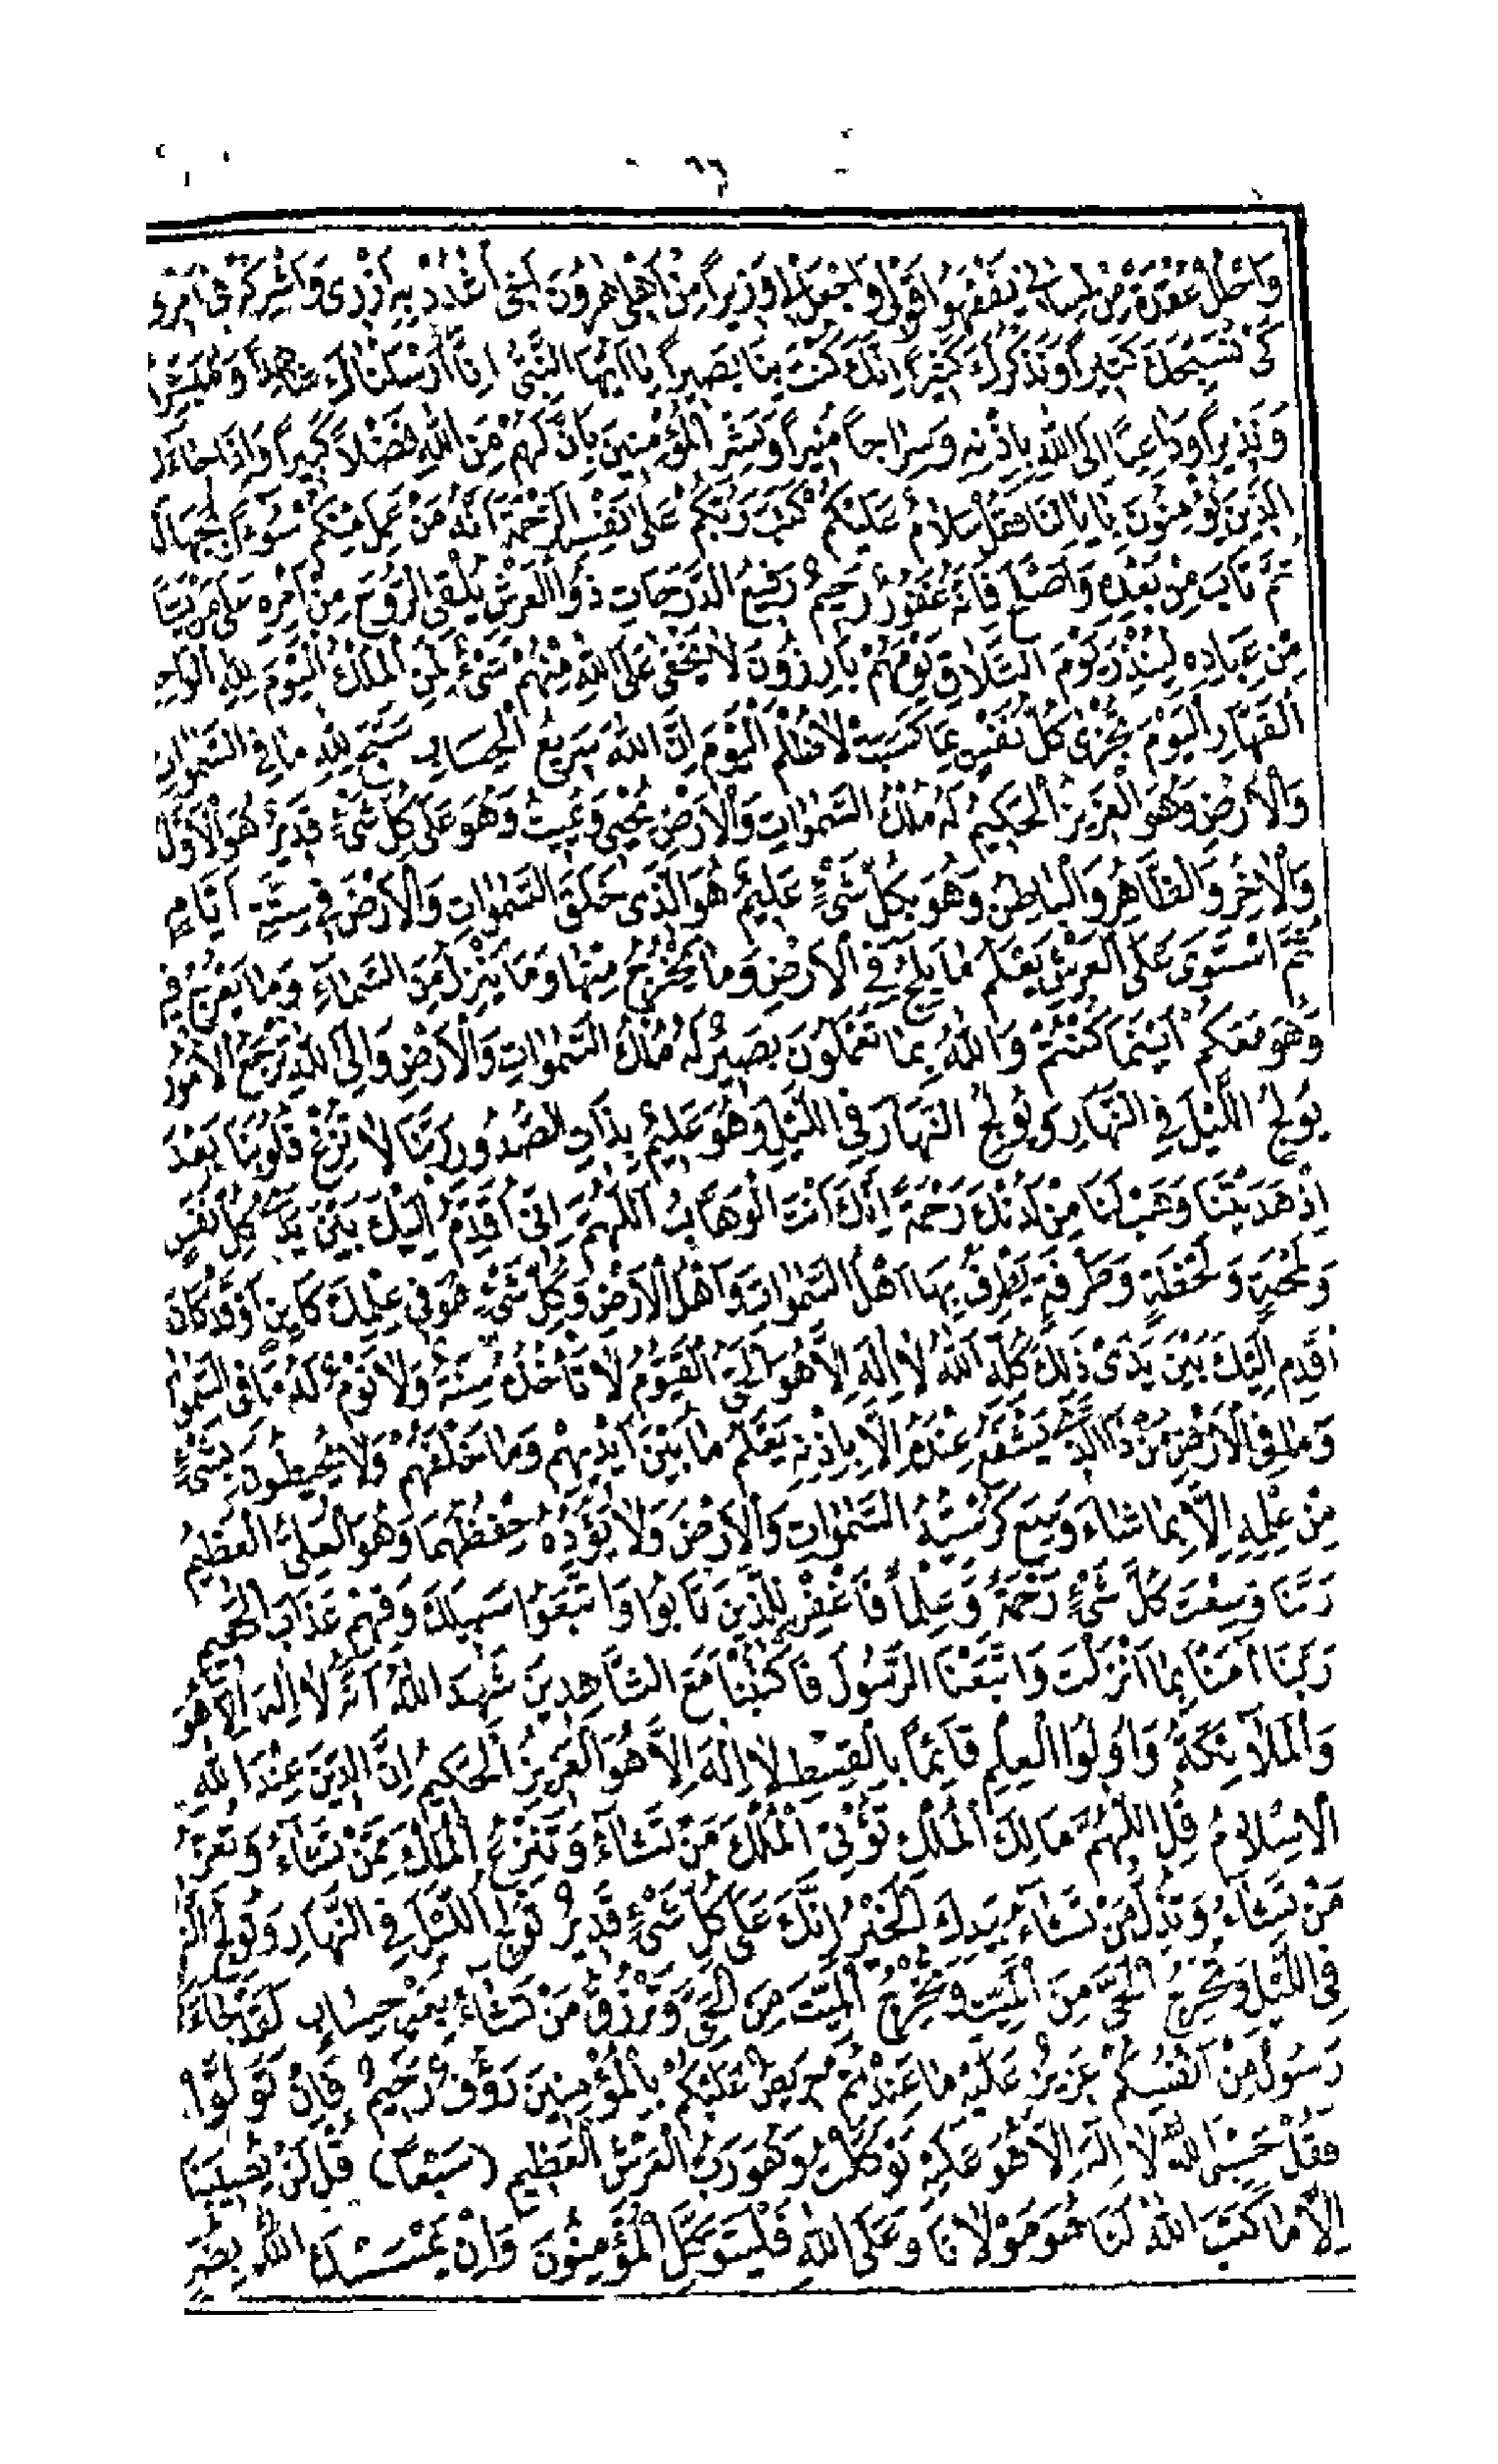 ٦٦
وَاحْلُلْ عُقْدَةً مِنْ لِسَانِي يَفْقَهُوا قَوْلِي وَاجْعَلْ لِي وَزِيراً مِنْ اَهْلِي هٰرُونَ اَخِي اشْدُدْ بِهِ اَزْرِى وَاَشْرِكْهُ فِى اَمْرِى
كَىْ نُسَبِّحَكَ كَثِيراً وَنَذْكُرَكَ كَثِيراً اِنَّكَ كُنْتَ بِنَا بَصِيراً يَا اَيُّهَا النَّبِىُّ اِنَّا اَرْسَلْنَاكَ شَاهِداً وَمُبَشِّراً
وَنَذِيراً وَدَاعِيًا اِلَى اللهِ بِاِذْنِهِ وَسِرَاجاً مُنِيراً وَبَشِّرِ الْمُؤْمِنِينَ بِاَنَّ لَهُمْ مِنَ اللهِ فَضْلاً كَبِيراً وَاِذَا جَاءَكَ
الَّذِينَ يُؤْمِنُونَ بِاٰيَاتِنَا فَقُلْ سَلَامٌ عَلَيْكُمْ كَتَبَ رَبُّكُمْ عَلَى نَفْسِهِ الرَّحْمَةَ اَنَّهُ مَنْ عَمِلَ مِنْكُمْ سُوءً بِجَهَالَةٍ
ثُمَّ تَابَ مِنْ بَعْدِهِ وَاَصْلَحَ فَاِنَّهُ غَفُورٌ رَحِيمٌ رَفِيعُ الدَّرَجَاتِ ذُوا الْعَرْشِ يُلْقِى الرُّوحَ مِنْ اَمْرِهِ عَلَى مَنْ يَشَاءُ
مِنْ عِبَادِهِ لِيُنْذِرَ يَوْمَ التَّلَاقِ يَوْمَ هُمْ بَارِزُونَ لَا يَخْفٰى عَلَى اللهِ مِنْهُمْ شَىْءٌ لِمَنِ الْمُلْكُ الْيَوْمَ لِلّٰهِ الْوَاحِدِ
الْقَهَّارِ اَلْيَوْمَ تُجْزٰى كُلُّ نَفْسٍ بِمَا كَسَبَتْ لَا ظُلْمَ الْيَوْمَ اِنَّ اللهَ سَرِيعُ الْحِسَابِ سَبَّحَ لِلّٰهِ مَا فِى السَّمٰوَاتِ
وَالْاَرْضِ وَهُوَ الْعَزِيزُ الْحَكِيمُ لَهُ مُلْكُ السَّمٰوَاتِ وَالْاَرْضِ يُحْيِى وَيُمِيتُ وَهُوَ عَلَى كُلِّ شَىْءٍ قَدِيرٌ هُوَ الْاَوَّلُ
وَالْاٰخِرُ وَالظَّاهِرُ وَالْبَاطِنُ وَهُوَ بِكُلِّ شَىْءٍ عَلِيمٌ هُوَ الَّذِى خَلَقَ السَّمٰوَاتِ وَالْاَرْضَ فِى سِتَّةِ اَيَّامٍ
ثُمَّ اسْتَوَى عَلَى الْعَرْشِ يَعْلَمُ مَا يَلِجُ فِى الْاَرْضِ وَمَا يَخْرُجُ مِنْهَا وَمَا يَنْزِلُ مِنَ السَّمَاءِ وَمَا يَعْرُجُ فِيهَا
وَهُوَ مَعَكُمْ اَيْنَمَا كُنْتُمْ وَاللهُ بِمَا تَعْمَلُونَ بَصِيرٌ لَهُ مُلْكُ السَّمٰوَاتِ وَالْاَرْضِ وَاِلَى اللهِ تُرْجَعُ الْاُمُورُ
يُولِجُ اللَّيْلَ فِى النَّهَارِ وَيُولِجُ النَّهَارَ فِى اللَّيْلِ وَهُوَ عَلِيمٌ بِذَاتِ الصُّدُورِ رَبَّنَا لَا تُزِغْ قُلُوبَنَا بَعْدَ
اِذْ هَدَيْتَنَا وَهَبْ لَنَا مِنْ لَدُنْكَ رَحْمَةً اِنَّكَ اَنْتَ الْوَهَّابُ اَللّٰهُمَّ اِنِّى اُقَدِّمُ اِلَيْكَ بَيْنَ يَدَىْ كُلِّ نَفَسٍ
وَلَمْحَةٍ وَلَحْظَةٍ وَطَرْفَةٍ يَطْرِفُ بِهَا اَهْلُ السَّمٰوَاتِ وَاَهْلُ الْاَرْضِ وَكُلِّ شَىْءٍ هُوَ فِى عِلْمِكَ كَائِنٌ اَوْ قَدْ كَانَ
اُقَدِّمُ اِلَيْكَ بَيْنَ يَدَىْ ذٰلِكَ كُلِّهِ اَللهُ لَا اِلٰهَ اِلَّا هُوَ الْحَىُّ الْقَيُّومُ لَا تَأْخُذُهُ سِنَةٌ وَلَا نَوْمٌ لَهُ مَا فِى السَّمٰوَاتِ
وَمَا فِى الْاَرْضِ مَنْ ذَا الَّذِى يَشْفَعُ عِنْدَهُ اِلَّا بِاِذْنِهِ يَعْلَمُ مَا بَيْنَ اَيْدِيهِمْ وَمَا خَلْفَهُمْ وَلَا يُحِيطُونَ بِشَىْءٍ
مِنْ عِلْمِهِ اِلَّا بِمَا شَاءَ وَسِعَ كُرْسِيُّهُ السَّمٰوَاتِ وَالْاَرْضَ وَلَا يَؤُدُهُ حِفْظُهُمَا وَهُوَ الْعَلِىُّ الْعَظِيمُ
رَبَّنَا وَسِعْتَ كُلَّ شَىْءٍ رَحْمَةً وَعِلْماً فَاغْفِرْ لِلَّذِينَ تَابُوا وَاتَّبَعُوا سَبِيلَكَ وَقِهِمْ عَذَابَ الْجَحِيمِ
رَبَّنَا اٰمَنَّا بِمَا اَنْزَلْتَ وَاتَّبَعْنَا الرَّسُولَ فَاكْتُبْنَا مَعَ الشَّاهِدِينَ شَهِدَ اللهُ اَنَّهُ لَا اِلٰهَ اِلَّا هُوَ
وَالْمَلَائِكَةُ وَاُولُوا الْعِلْمِ قَائِمًا بِالْقِسْطِ لَا اِلٰهَ اِلَّا هُوَ الْعَزِيزُ الْحَكِيمُ اِنَّ الدِّينَ عِنْدَ اللهِ
الْاِسْلَامُ قُلِ اللّٰهُمَّ مَالِكَ الْمُلْكِ تُؤْتِى الْمُلْكَ مَنْ تَشَاءُ وَتَنْزِعُ الْمُلْكَ مِمَّنْ تَشَاءُ وَتُعِزُّ
مَنْ تَشَاءُ وَتُذِلُّ مَنْ تَشَاءُ بِيَدِكَ الْخَيْرُ اِنَّكَ عَلَى كُلِّ شَىْءٍ قَدِيرٌ تُولِجُ اللَّيْلَ فِى النَّهَارِ وَتُولِجُ النَّهَارَ
فِى اللَّيْلِ وَتُخْرِجُ الْحَىَّ مِنَ الْمَيِّتِ وَتُخْرِجُ الْمَيِّتَ مِنَ الْحَىِّ وَتَرْزُقُ مَنْ تَشَاءُ بِغَيْرِ حِسَابٍ لَقَدْ جَاءَكُمْ
رَسُولٌ مِنْ اَنْفُسِكُمْ عَزِيزٌ عَلَيْهِ مَا عَنِتُّمْ حَرِيصٌ عَلَيْكُمْ بِالْمُؤْمِنِينَ رَؤُفٌ رَحِيمٌ فَاِنْ تَوَلَّوْا
فَقُلْ حَسْبِىَ اللهُ لَا اِلٰهَ اِلَّا هُوَ عَلَيْهِ تَوَكَّلْتُ وَهُوَ رَبُّ الْعَرْشِ الْعَظِيمِ (سَبْعاً) قُلْ لَنْ يُصِيبَنَا
اِلَّا مَا كَتَبَ اللهُ لَنَا هُوَ مَوْلَانَا وَعَلَى اللهِ فَلْيَتَوَكَّلِ الْمُؤْمِنُونَ وَاِنْ يَمْسَسْكَ اللهُ بِضُرٍّ